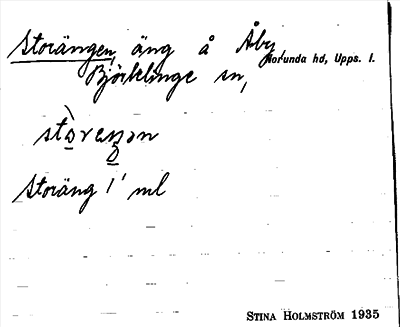 Storängen, äng å Åby, Norunda hd, Upps. l.
Björklinge sn,
Storäng 1' ml
STINA HOLMSTRÖM 1935